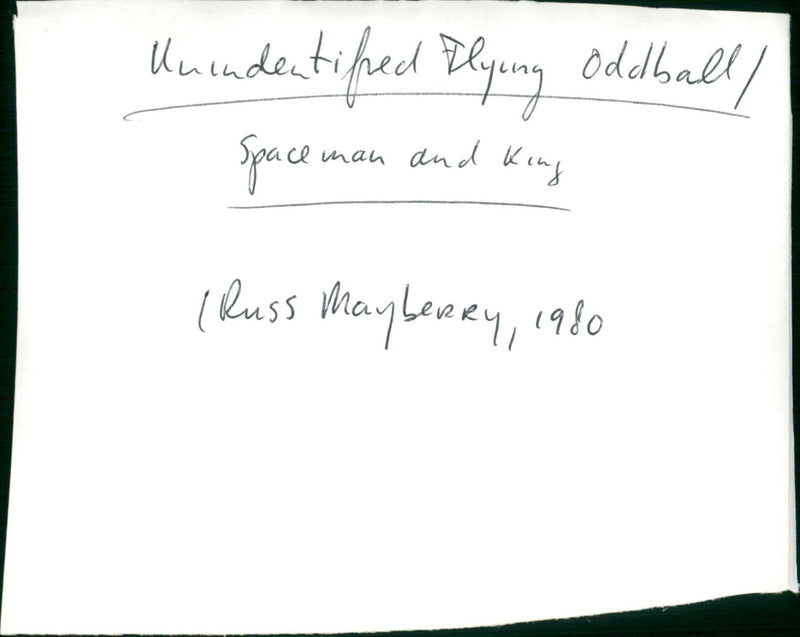 Unindentified Flying Oddball/
Spaceman and King
(Russ Mayberry, 1980